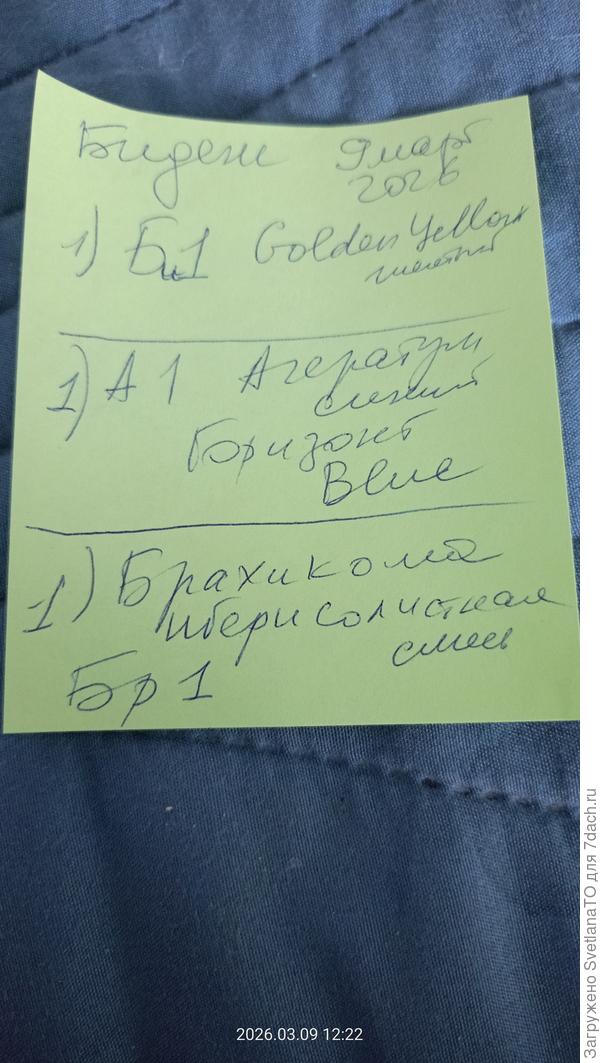 Биденс 9 март
2026
1) Би1 Golden Yellow
желтый
1) А 1 Агератум
синий
Горизонт
Blue
1) Брахикома
иберисолистная
смесь
Бр 1
2026.03.09 12:22
Загружено SvetlanaTO для 7dach.ru